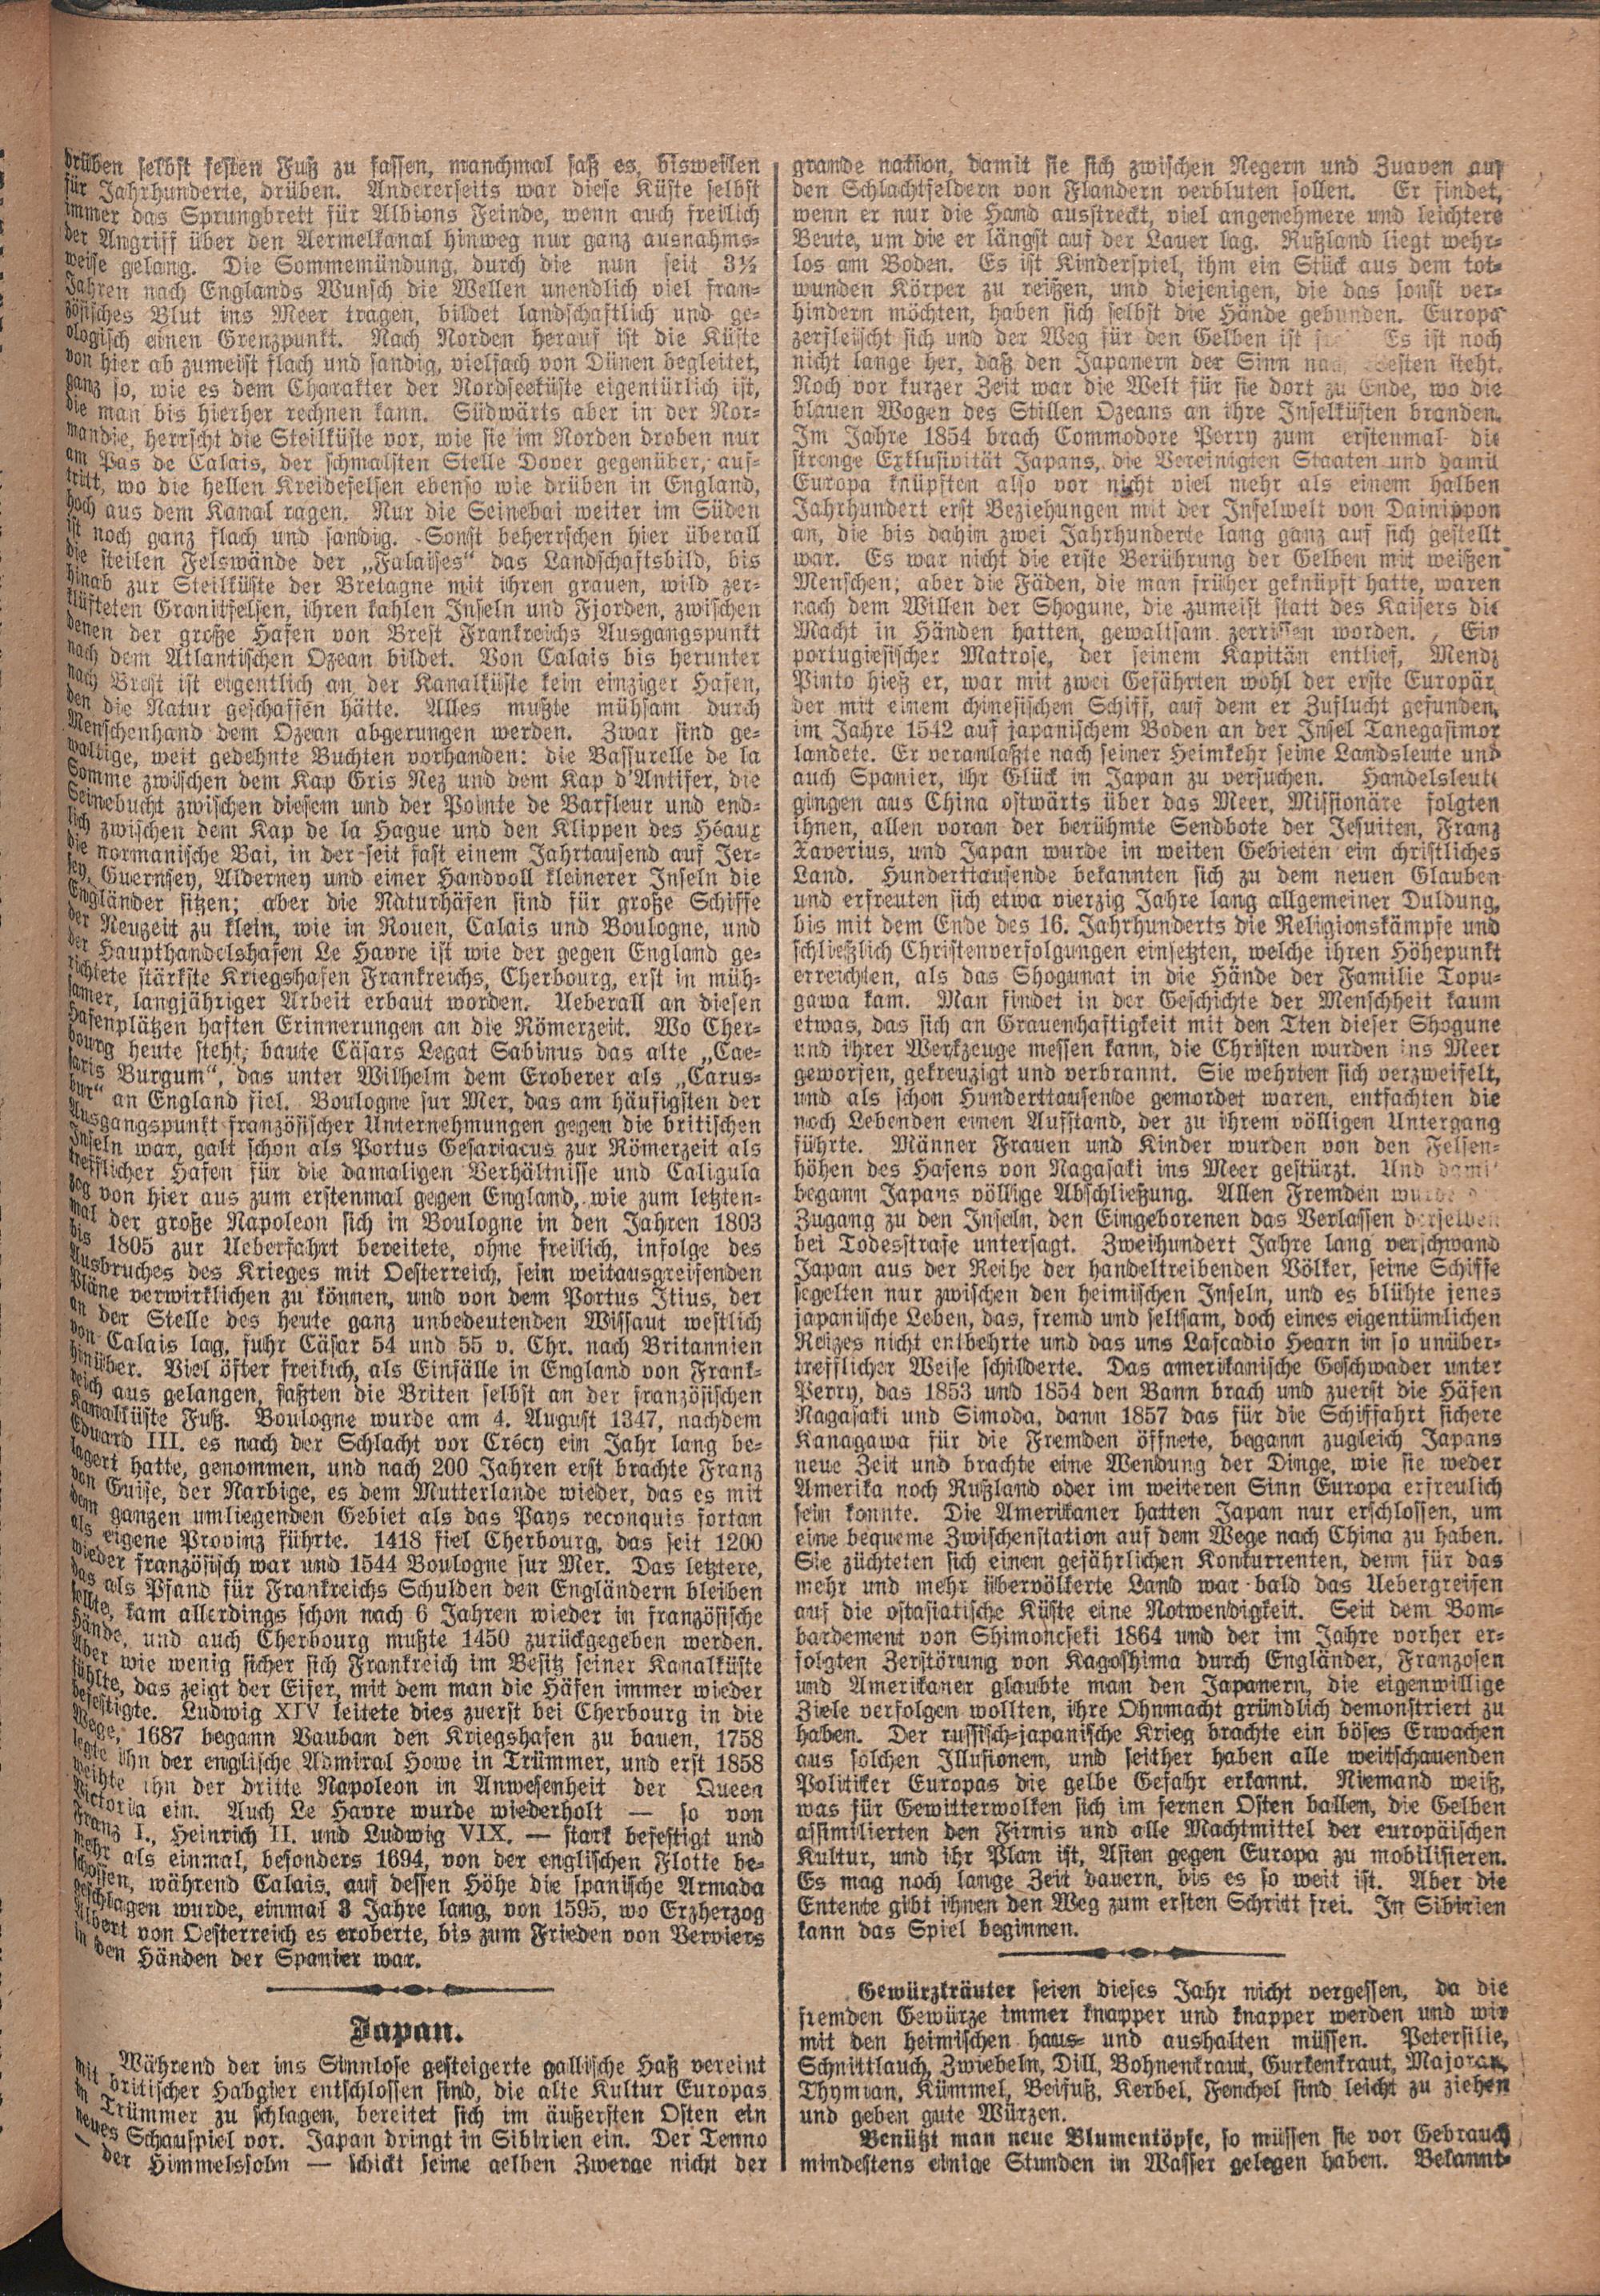 drüben selbst festen Fuß zu fassen, manchmal saß es, bisweilen
für Jahrhunderte, drüben. Andererseits war diese Küste selbst
immer das Sprungbrett für Albions Feinde, wenn auch freilich
der Angriff über den Aermelkanal hinweg nur ganz ausnahms-
weise gelang. Die Sommemündung, durch die nun seit 3½
Jahren nach Englands Wunsch die Wellen unendlich viel fran-
zösisches Blut ins Meer tragen, bildet landschaftlich und ge-
ologisch einen Grenzpunkt. Nach Norden herauf ist die Küste
von hier ab zumeist flach und sandig, vielfach von Dünen begleitet,
ganz so, wie es dem Charakter der Nordseeküste eigentürlich ist,
die man bis hierher rechnen kann. Südwärts aber in der Nor-
mandie, herrscht die Steilküste vor, wie sie im Norden droben nur
am Pas de Calais, der schmalsten Stelle Dover gegenüber, auf-
tritt, wo die hellen Kreidefelsen ebenso wie drüben in England,
hoch aus dem Kanal ragen. Nur die Seinebai weiter im Süden
ist noch ganz flach und sandig. Sonst beherrschen hier überall
die steilen Felswände der „Falaises“ das Landschaftsbild, bis
hinab zur Steilküste der Bretagne mit ihren grauen, wild zer-
klüfteten Granitfelsen, ihren kahlen Inseln und Fjorden, zwischen
denen der große Hafen von Brest Frankreichs Ausgangspunkt
nach dem Atlantischen Ozean bildet. Von Calais bis herunter
nach Brest ist eigentlich an der Kanalküste kein einziger Hafen,
den die Natur geschaffen hätte. Alles mußte mühsam durch
Menschenhand dem Ozean abgerungen werden. Zwar sind ge-
waltige, weit gedehnte Buchten vorhanden: die Bassurelle de la
Somme zwischen dem Kap Gris Nez und dem Kap d'Antifer, die
Seinebucht zwischen diesem und der Pointe de Barfleur und end-
lich zwischen dem Kap de la Hague und den Klippen des Héaux
die normanische Bai, in der seit fast einem Jahrtausend auf Jer-
sey, Guernsey, Alderney und einer Handvoll kleinerer Inseln die
Engländer sitzen; aber die Naturhäfen sind für große Schiffe
der Neuzeit zu klein, wie in Rouen, Calais und Boulogne, und
der Haupthandelshafen Le Havre ist wie der gegen England ge-
richtete stärkste Kriegshafen Frankreichs, Cherbourg, erst in müh-
samer, langjähriger Arbeit erbaut worden. Ueberall an diesen
Hafenplätzen haften Erinnerungen an die Römerzeit. Wo Cher-
bourg heute steht, baute Cäsars Legat Sabinus das alte „Cae-
saris Burgum“, das unter Wilhelm dem Eroberer als „Carus-
bur“ an England fiel. Boulogne sur Mer, das am häufigsten der
Ausgangspunkt französischer Unternehmungen gegen die britischen
Inseln war, galt schon als Portus Gesariacus zur Römerzeit als
trefflicher Hafen für die damaligen Verhältnisse und Caligula
zog von hier aus zum erstenmal gegen England, wie zum letzten-
mal der große Napoleon sich in Boulogne in den Jahren 1803
bis 1805 zur Ueberfahrt bereitete, ohne freilich, infolge des
Ausbruches des Krieges mit Oesterreich, sein weitausgreifenden
Pläne verwirklichen zu können, und von dem Portus Itius, der
an der Stelle des heute ganz unbedeutenden Wissaut westlich
von Calais lag, fuhr Cäsar 54 und 55 v. Chr. nach Britannien
hinüber. Viel öfter freilich, als Einfälle in England von Frank-
reich aus gelangen, faßten die Briten selbst an der französischen
Kanalküste Fuß. Boulogne wurde am 4. August 1347, nachdem
Eduard III. es nach der Schlacht vor Crécy ein Jahr lang be-
lagert hatte, genommen, und nach 200 Jahren erst brachte Franz
von Guise, der Narbige, es dem Mutterlande wieder, das es mit
dem ganzen umliegenden Gebiet als das Pays reconquis fortan
als eigene Provinz führte. 1418 fiel Cherbourg, das seit 1200
wieder französisch war und 1544 Boulogne sur Mer. Das letztere,
das als Pfand für Frankreichs Schulden den Engländern bleiben
sollte, kam allerdings schon nach 6 Jahren wieder in französische
Hände, und auch Cherbourg mußte 1450 zurückgegeben werden.
Aber wie wenig sicher sich Frankreich im Besitz seiner Kanalküste
fühlte, das zeigt der Eifer, mit dem man die Häfen immer wieder
befestigte. Ludwig XIV leitete dies zuerst bei Cherbourg in die
Wege, 1687 begann Vauban den Kriegshafen zu bauen, 1758
legte ihn der englische Admiral Howe in Trümmer, und erst 1858
weihte ihn der dritte Napoleon in Anwesenheit der Queen
Victoria ein. Auch Le Havre wurde wiederholt — so von
Franz I., Heinrich II. und Ludwig VIX. — stark befestigt und
mehr als einmal, besonders 1694, von der englischen Flotte be-
schossen, während Calais, auf dessen Höhe die spanische Armada
geschlagen wurde, einmal 3 Jahre lang, von 1595, wo Erzherzog
Albert von Oesterreich es eroberte, bis zum Frieden von Verviers
in den Händen der Spanier war.
Japan.
Während der ins Sinnlose gesteigerte gallische Haß vereint
mit britischer Habgier entschlossen sind, die alte Kultur Europas
in Trümmer zu schlagen, bereitet sich im äußersten Osten ein
neues Schauspiel vor. Japan dringt in Sibirien ein. Der Tenno
— der Himmelssohn — schickt seine gelben Zwerge nicht der
grande nation, damit sie sich zwischen Negern und Zuaven auf
den Schlachtfeldern von Flandern verbluten sollen. Er findet,
wenn er nur die Hand ausstreckt, viel angenehmere und leichtere
Beute, um die er längst auf der Lauer lag. Rußland liegt wehr-
los am Boden. Es ist Kinderspiel, ihm ein Stück aus dem tot-
wunden Körper zu reißen, und diejenigen, die das sonst ver-
hindern möchten, haben sich selbst die Hände gebunden. Europa
zerfleischt sich und der Weg für den Gelben ist Es ist noch
nicht lange her, daß den Japanern der Sinn nach Westen steht.
Noch vor kurzer Zeit war die Welt für sie dort zu Ende, wo die
blauen Wogen des Stillen Ozeans an ihre Inselküsten branden.
Im Jahre 1854 brach Commodore Perry zum erstenmal die
strenge Exklusivität Japans, die Vereinigten Staaten und damit
Europa knüpften also vor nicht viel mehr als einem halben
Jahrhundert erst Beziehungen mit der Inselwelt von Dainippon
an, die bis dahin zwei Jahrhunderte lang ganz auf sich gestellt
war. Es war nicht die erste Berührung der Gelben mit weißen
Menschen; aber die Fäden, die man früher geknüpft hatte, waren
nach dem Willen der Shogune, die zumeist statt des Kaisers die
Macht in Händen hatten, gewaltsam zerrissen worden. Ein
portugiesischer Matrose, der seinem Kapitän entlief, Mendz
Pinto hieß er, war mit zwei Gefährten wohl der erste Europär
der mit einem chinesischen Schiff, auf dem er Zuflucht gefunden,
im Jahre 1542 auf japanischem Boden an der Insel Tanegasimor
landete. Er veranlaßte nach seiner Heimkehr seine Landsleute und
auch Spanier, ihr Glück in Japan zu versuchen. Handelsleute
gingen aus China ostwärts über das Meer, Missionäre folgten
ihnen, allen voran der berühmte Sendbote der Jesuiten, Franz
Xaverius, und Japan wurde in weiten Gebieten ein christliches
Land. Hunderttausende bekannten sich zu dem neuen Glauben
und erfreuten sich etwa vierzig Jahre lang allgemeiner Duldung,
bis mit dem Ende des 16. Jahrhunderts die Religionskämpfe und
schließlich Christenverfolgungen einsetzten, welche ihren Höhepunkt
erreichten, als das Shogunat in die Hände der Familie Topu-
gawa kam. Man findet in der Geschichte der Menschheit kaum
etwas, das sich an Grauenhaftigkeit mit den Tten dieser Shogune
und ihrer Werkzeuge messen kann, die Christen wurden ins Meer
geworfen, gekreuzigt und verbrannt. Sie wehrten sich verzweifelt,
und als schon Hunderttausende gemordet waren, entfachten die
noch Lebenden einen Aufstand, der zu ihrem völligen Untergang
führte. Männer Frauen und Kinder wurden von den Felsen-
höhen des Hafens von Nagasaki ins Meer gestürzt. Und damit
begann Japans völlige Abschließung. Allen Fremden wurde
Zugang zu den Inseln, den Eingeborenen das Verlassen derselben
bei Todesstrafe untersagt. Zweihundert Jahre lang verschwand
Japan aus der Reihe der handeltreibenden Völker, seine Schiffe
segelten nur zwischen den heimischen Inseln, und es blühte jenes
japanische Leben, das, fremd und seltsam, doch eines eigentümlichen
Reizes nicht entbehrte und das uns Lafcadio Hearn in so unüber-
trefflicher Weise schilderte. Das amerikanische Geschwader unter
Perry, das 1853 und 1854 den Bann brach und zuerst die Häfen
Nagasaki und Simoda, dann 1857 das für die Schiffahrt sichere
Kanagawa für die Fremden öffnete, begann zugleich Japans
neue Zeit und brachte eine Wendung der Dinge, wie sie weder
Amerika noch Rußland oder im weiteren Sinn Europa erfreulich
sein konnte. Die Amerikaner hatten Japan nur erschlossen, um
eine bequeme Zwischenstation auf dem Wege nach China zu haben.
Sie züchteten sich einen gefährlichen Konkurrenten, denn für das
mehr und mehr übervölkerte Land war bald das Uebergreifen
auf die ostasiatische Küste eine Notwendigkeit. Seit dem Bom-
bardement von Shimoneseki 1864 und der im Jahre vorher er-
folgten Zerstörung von Kagoshima durch Engländer, Franzosen
und Amerikaner glaubte man den Japanern, die eigenwillige
Ziele verfolgen wollten, ihre Ohnmacht gründlich demonstriert zu
haben. Der russisch-japanische Krieg brachte ein böses Erwachen
aus solchen Illusionen, und seither haben alle weitschauenden
Politiker Europas die gelbe Gefahr erkannt. Niemand weiß,
was für Gewitterwolken sich im fernen Osten ballen, die Gelben
assimilierten den Firnis und alle Machtmittel der europäischen
Kultur, und ihr Plan ist, Asien gegen Europa zu mobilisieren.
Es mag noch lange Zeit dauern, bis es so weit ist. Aber die
Entente gibt ihnen den Weg zum ersten Schritt frei. In Sibirien
kann das Spiel beginnen.
Gewürzkräuter seien dieses Jahr nicht vergessen, da die
fremden Gewürze immer knapper und knapper werden und wir
mit den heimischen haus- und aushalten müssen. Petersilie,
Schnittlauch, Zwiebeln, Dill, Bohnenkraut, Gurkenkraut, Majoran,
Thymian, Kümmel, Beifuß, Kerbel, Fenchel sind leicht zu ziehen
und geben gute Würzen.
Benützt man neue Blumentöpfe, so müssen sie vor Gebrauch
mindestens einige Stunden in Wasser gelegen haben. Bekannt-